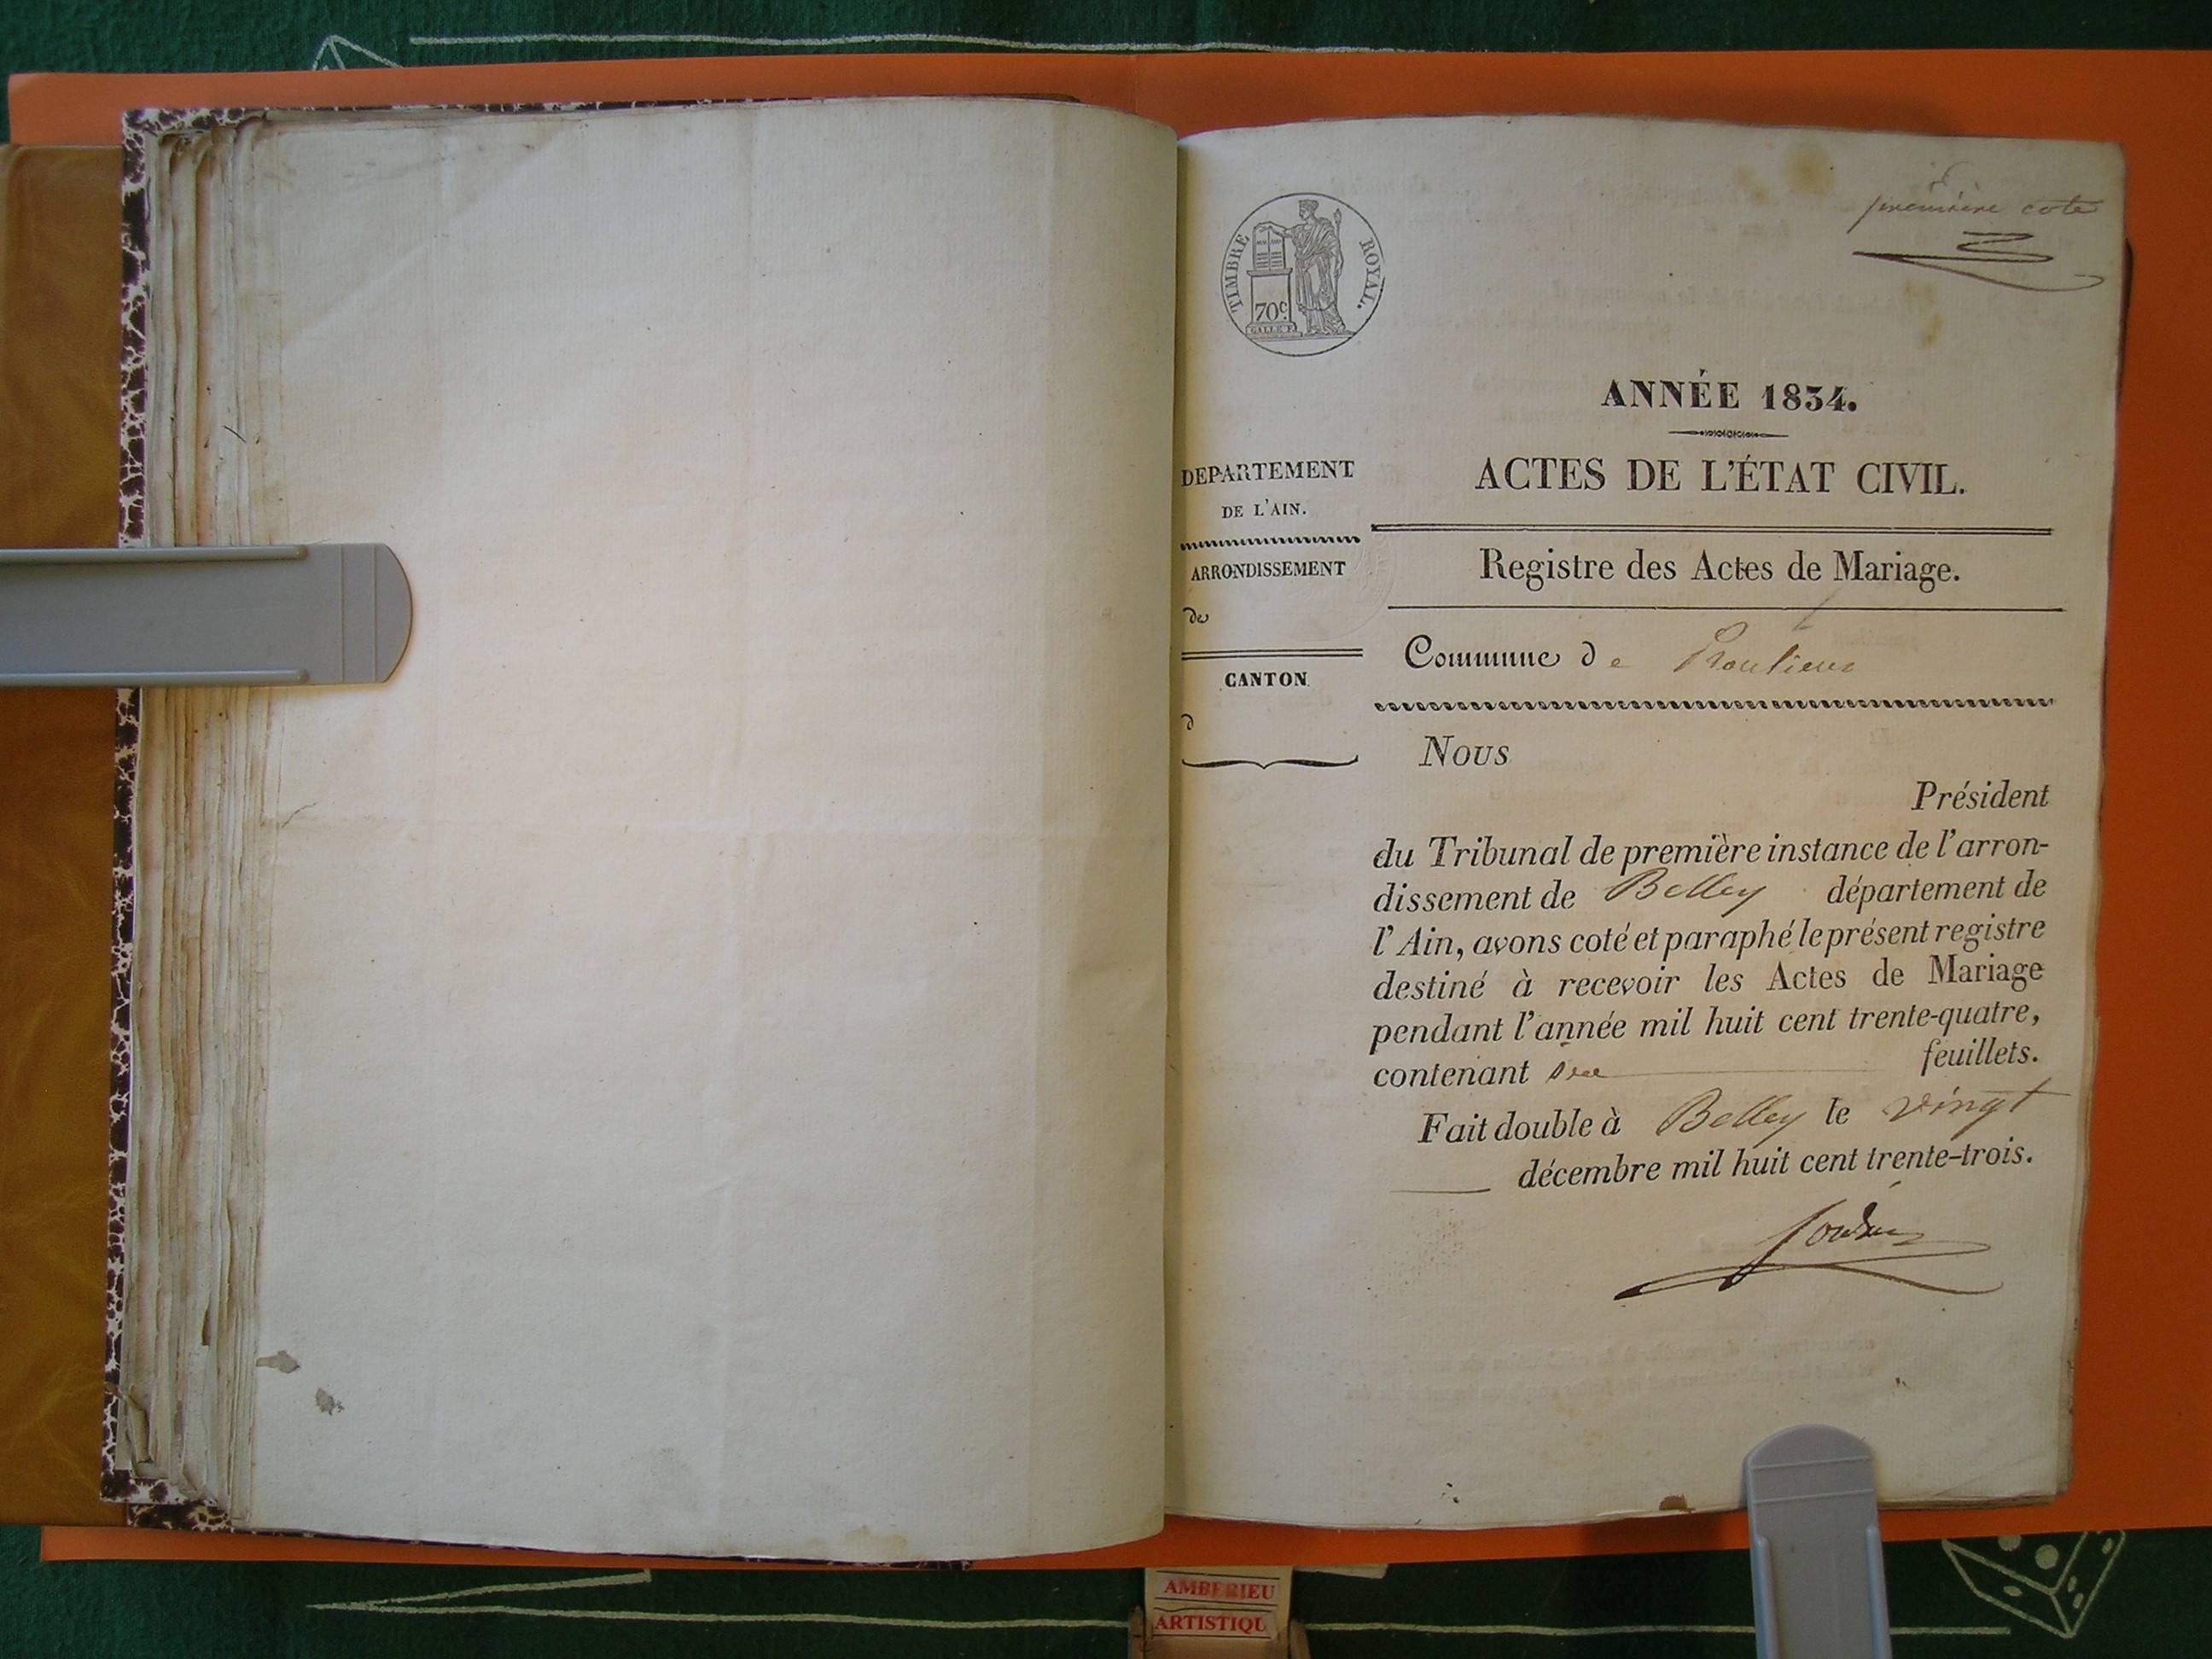 première cote
TIMBRE ROYAL.
70c
GALLE F.
ANNÉE 1834.
ACTES DE L'ÉTAT CIVIL.
DEPARTEMENT
DE L'AIN.
ARRONDISSEMENT
de
CANTON
d
Registre des Actes de Mariage.
Commune de
Nous
Président
du Tribunal de première instance de l'arron-
dissement de Belley département de
l'Ain, avons coté et paraphé le présent registre
destiné à recevoir les Actes de Mariage
pendant l'année mil huit cent trente-quatre,
contenant six feuillets.
Fait double à Belley le vingt
décembre mil huit cent trente-trois.
AMBERIEU
ARTISTIQU